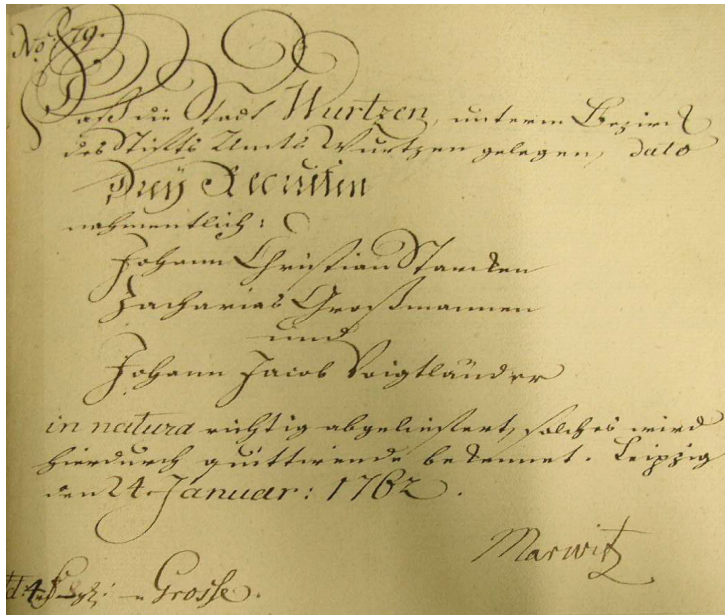 No: 79.
Daß die Stadt Wurtzen, unterm Bezirck
des Stiffts Amts Wurtzen gelegen, dato
Drey Recruten
nahmentlich:
Johann Christian Starcken
Zacharias Großmannen
und
Johann Jacob Voigtländer
in natura richtig abgeliefert, solches wird
hierdurch quittirende bekennet. Leipzig
den 24. Januar: 1762.
Marwitz
Grosse.